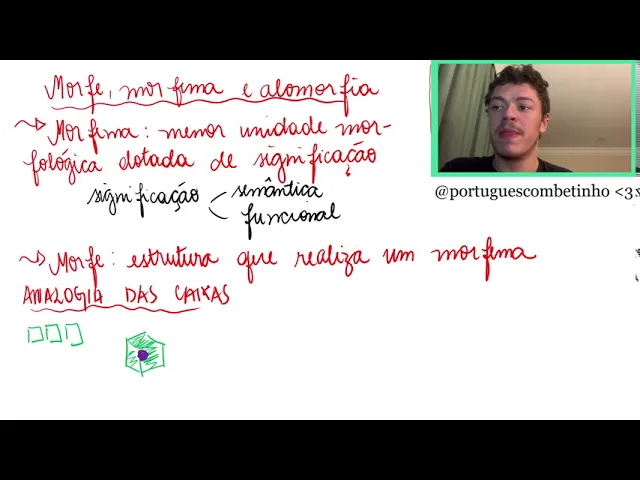 Morfe, morfema e alomorfia
~> Morfema: menor unidade mor-
fológica dotada de significação
significação < semântica
funcional
@portuguescombetinho <3
~> Morfe: estrutura que realiza um morfema
ANALOGIA DAS CAIXAS